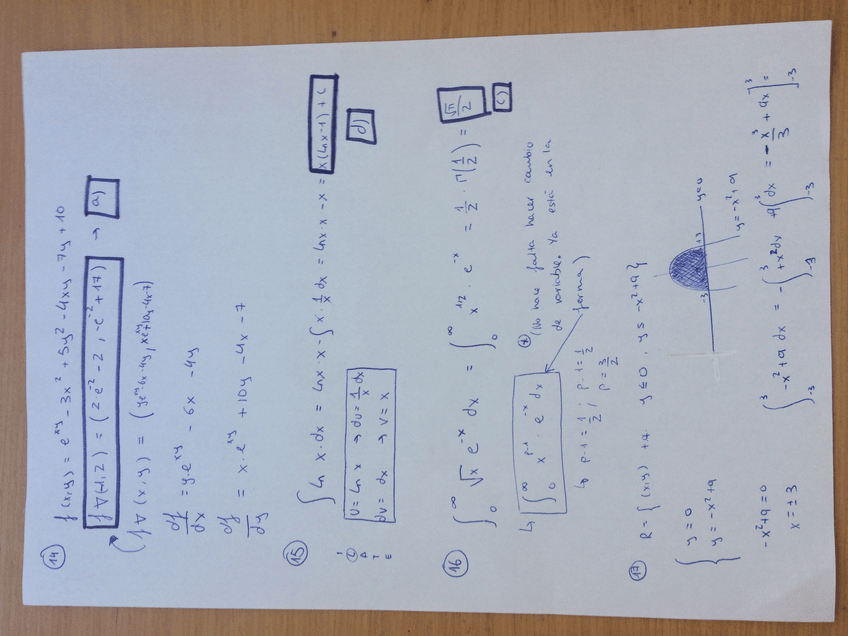 14 f(x,y) = e^xy - 3x² + 5y² - 4xy - 7y + 10
f∇(-1,2) = (2e^-2 - 2, -e^-2 + 17) → a)
f∇(x,y) = (ye^xy-6x-4y, xe^xy+10y-4x-7)
df/dx = y·e^xy - 6x - 4y
df/dy = x·e^xy + 10y - 4x - 7
15 ∫ ln x·dx = lnx·x - ∫ x·1/x dx = lnx·x - x = x(lnx-1)+C
d)
I
L
A
T
E
U = ln x → dU = 1/x dx
dv = dx → v = x
16 ∫₀^∞ √x e^-x dx = ∫₀^∞ x^1/2 · e^-x = 1/2 · Γ(1/2) = √π/2
c)
* (No hace falta hacer cambio
de variable. Ya está en la
forma)
↳ ∫₀^∞ x^p-1 · e^-x dx
↳ p-1 = 1/2 ; p-1 = 1/2
p = 3/2
17 R = {(x,y) + q. y≥0, y≤ -x²+9}
{ y = 0
y = -x²+9
-3 +3 y=0
y=-x²+9
-x²+9=0
x = ±3
∫₋₃³ -x²+9 dx = -∫₋₃³ +x² dx ∫₋₃³ 9 dx = -x³/3 + 9x]₋₃³ =